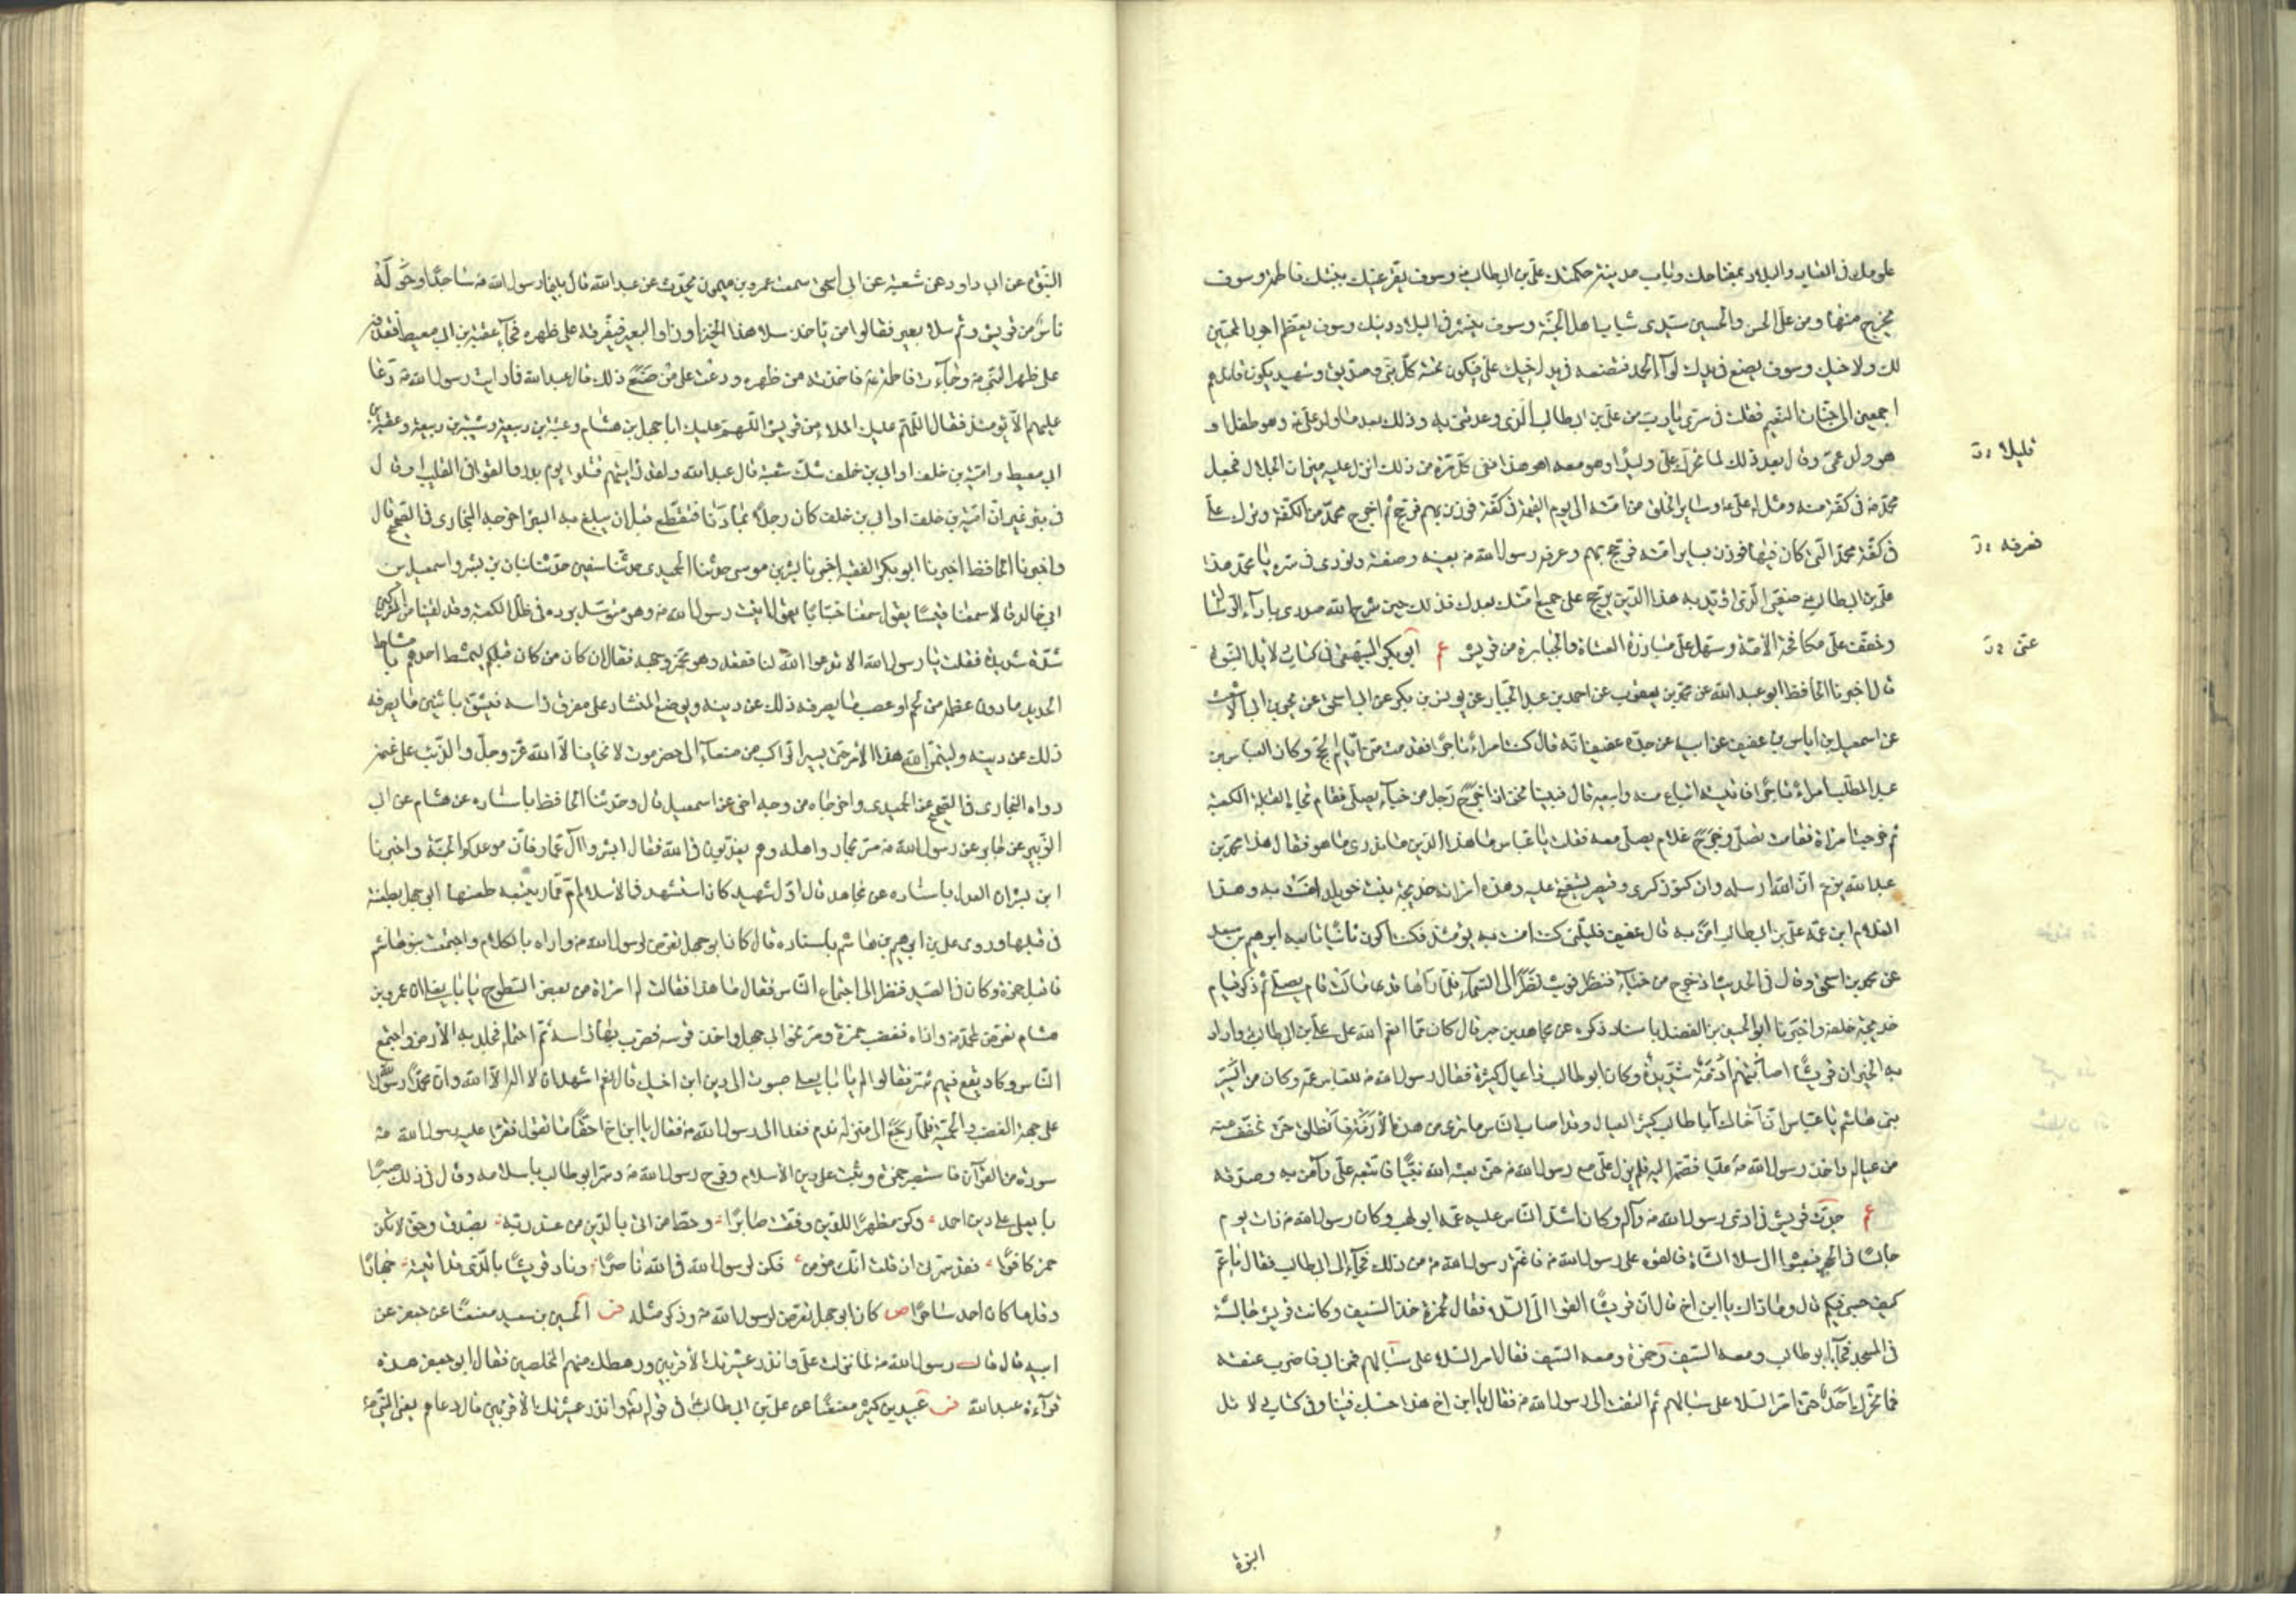 علومك في العباد والبلاد بمفتاحك وباب مدينة حكمتك علي بن ابيطالب ع وسوف يقر عينك ببنتك فاطمة وسوف
يخرج منها ومن علي الحسن والحسين سيدي شباب اهل الجنة وسوف ينشر في البلاد دينك وسوف يعظم اجور المحبين
لك ولاخيك وسوف يضع في يدك لوآء الحمد فتضعه في يد اخيك علي فيكون تحته كل نبي وصديق وشهيد يكون قائدهم
اجمعين الى جنات النعيم فقلت في سري يا رب من علي بن ابيطالب الذي وعدتني به وذلك بعد ما ولد علي ع وهو طفل او
هو ولد عمي وقال بعد ذلك لما تحرك علي وليدا وهو معه اهو هذا ففي كل مرة من ذلك انزل عليه ميزان الجلال فجعل
محمد ص في كفة منه ومثل له علي ع وسائر الخلق من امته الى يوم القيمة في كفة فوزن بهم فرجح ثم اخرج محمد من الكفة وترك علي
في كفة محمد التي كان فيها فوزن بسائر امته فرجح بهم وعرفه رسول الله ص بعينه وصفته ونودي في سره يا محمد هذا
علي بن ابيطالب ع صفيي الذي اؤيد به هذا الدين يرجح على جميع امتك بعدك فذلك حين شرح الله صدري بأداء الرسالة
وخفف علي مكافحة الامة وسهل علي مبارزة العتاة والجبابرة من قريش ع ابو بكر البيهقي في كتاب دلائل النبوة
قال اخبرنا الحافظ ابو عبد الله عن محمد بن يعقوب عن احمد بن عبد الجبار عن يونس بن بكر عن ابي اسحق عن يحيى بن ابي الاشعث
عن اسمعيل بن اياس بن عفيف عن ابيه عن جده عفيف انه قال كنت امراء تاجرا فقدمت منى ايام الحج وكان العباس بن
عبد المطلب امراء تاجرا فاتيته ابتاع منه وابيعه قال فبينا نحن اذا خرج رجل من خباء يصلي فقام تجاه القبلة الكعبة
ثم خرجت امراة فقامت تصلي وخرج غلام يصلي معه فقلت يا عباس ما هذا الدين ما ندري ما هو فقال هذا محمد بن
عبد الله يزعم ان الله ارسله وان كنوز كسرى وقيصر ستفتح عليه وهذه امراته خديجة بنت خويلد امنت به وهذا
الغلام ابن عمه علي بن ابيطالب امن به قال عفيف فليتني كنت امنت به يومئذ فكنت اكون ثانيا تابعه ابرهيم بن سعد
عن محمد بن اسحق وقال في الحديث اذ خرج من خباء فنظر قريب نظر الى السماء فلما راها قد مالت قام يصلي ثم ذكر قيام
خديجة خلفه واخبرنا ابو الحسين بن الفضل باسناد ذكره عن مجاهد بن جبر قال كان مما انعم الله على علي بن ابي طالب واراد
به الخير ان قريشا اصابتهم ازمة شديدة وكان ابو طالب ذا عيال كثيرة فقال رسول الله ص للعباس عمه وكان من ايسر
بني هاشم يا عباس ان اخاك ابا طالب كثير العيال وقد اصاب الناس ما ترى من هذه الازمة فانطلق حتى نخفف عنه
من عياله واخذ رسول الله ص عليا فضمه اليه فلم يزل علي مع رسول الله ص حتى بعثه الله نبيا فاتبعه علي وآمن به وصدقه
ع جدت قريش في اذى رسول الله ص وآله وكان اشد الناس عليه عمه ابو لهب وكان رسول الله ص ذات يوم
جالسا في الحجر فبعثوا الى سلا الشاة فالقوه على رسول الله ص فاغتم رسول الله ص من ذلك فجاء الى ابيطالب فقال يا عم
كيف حسبي فيكم قال وما ذاك يا ابن اخ قال ان قريشا القوا الي السلا فقال لحمزة خذ السيف وكانت قريش جالسة
في المسجد فجاء ابو طالب ومعه السيف وحمزة ومعه السيف فقال امر السلا على سبالهم فمن ابى فاضرب عنقه
فما تحرك احد حتى امر السلا على سبالهم ثم التفت الى رسول الله ص فقال يا ابن اخ هذا حسبك فينا وفي كتاب دلائل
النبوة
قليلا د ت
نعرفه د ت
عني د ت
النبوة عن ابي داود عن شعبة عن ابي اسحق سمعت عمرو بن ميمون يحدث عن عبد الله قال بينما رسول الله ص ساجد وحوله
ناس من قريش وثم سلا بعير فقالوا من ياخذ سلا هذا الجزور او البعير فيفرقه على ظهره فجاء عقبة بن ابي معيط فقذفه
على ظهر النبي ص وجاءت فاطمة ع فاخذته من ظهره ودعت على من صنع ذلك قال عبد الله فما رايت رسول الله ص دعا
عليهم الا يومئذ فقال اللهم عليك الملاء من قريش اللهم عليك ابا جهل بن هشام وعتبة بن ربيعة وشيبة بن ربيعة وعقبة بن
ابي معيط وامية بن خلف او ابي بن خلف شك شعبة قال عبد الله ولقد رايتهم قتلوا يوم بدر والقوا في القليب او قال
في بئر غير ان امية بن خلف او ابي بن خلف كان رجلا بادنا فتقطع قبل ان يبلغ به البئر اخرجه البخاري في الصحيح قال
واخبرنا الحافظ اخبرنا ابو بكر الفقيه اخبرنا بشر بن موسى حدثنا الحميدي حدثنا سفين حدثنا بنان بن بشر واسمعيل بن
ابي خالد قالا سمعنا قيسا يقول سمعنا خبابا يقول اتيت رسول الله ص وهو متوسد برده في ظل الكعبة وقد لقينا من المشركين
شدة شديدة فقلت يا رسول الله الا تدعوا الله لنا فقعد وهو محمر وجهه فقال ان كان من كان قبلكم ليمشط احدهم بامشاط
الحديد ما دون عظمه من لحم او عصب ما يصرفه ذلك عن دينه ويوضع المنشار على مفرق راسه فيشق باثنين ما يصرفه
ذلك عن دينه وليتمن الله هذا الامر حتى يسير الراكب من صنعاء الى حضرموت لا يخاف الا الله عز وجل والذئب على غنمه
رواه البخاري في الصحيح عن الحميدي واخرجاه من وجه اخر عن اسمعيل قال وحدثنا الحافظ باسناده عن هشام عن ابي
الزبير عن جابر عن رسول الله ص مر بعمار واهله وهم يعذبون في الله فقال ابشروا آل عمار فان موعدكم الجنة واخبرنا
ابن بشران العدل باسناده عن مجاهد قال اول شهيد كان استشهد في الاسلام ام عمار سمية طعنها ابو جهل بطعنة
في قبلها وروى علي بن ابرهيم بن هاشم باسناده قال كان ابو جهل تعرض لرسول الله ص واذاه بالكلام واجتمعت بنو هاشم
فاقبل حمزة وكان في الصيد فنظر الى اجتماع الناس فقال ما هذا فقالت له امراة من بعض السطوح يا ابا يعلى ان عمرو بن
هشام تعرض لمحمد ص واذاه فغضب حمزة ومر نحو ابي جهل واخذ قوسه فضرب بها راسه ثم احتمله فجلد به الارض واجتمع
الناس وكاد يقع فيهم شر فقالوا له يا ابا يعلى صبوت الى دين ابن اخيك قال نعم اشهد ان لا اله الا الله وان محمدا رسول الله
على جهة الغضب والحمية فلما رجع الى منزله ندم فغدا الى رسول الله ص فقال يا ابن اخ احقا ما تقول فقرا عليه رسول الله ص
سورة من القرآن فاستبصر حمزة وثبت على دين الاسلام وفرح رسول الله ص وسر ابو طالب باسلامه وقال في ذلك صبرا
يا يعلى على دين احمد وكن مظهرا للدين وفقت صابرا وحط من اتى بالدين من عند ربه بصدق وحق لا تكن
حمز كافرا فقد سرني ان قلت انك مؤمن فكن لرسول الله في الله ناصرا وناد قريشا بالذي قد اتيته جهارا
وقل ما كان احمد ساحرا ص كان ابو جهل تعرض لرسول الله ص وذكر مثله فر الحسين بن سعيد معنعنا عن جعفر عن
ابيه قال قال رسول الله ص لما نزلت علي وانذر عشيرتك الاقربين ورهطك منهم المخلصين فقال ابو جعفر هذه
قرآءة عبد الله فر عبيد بن كثير معنعنا عن علي بن ابي طالب في قوله وانذر عشيرتك الاقربين قال دعاهم يعني النبي ص